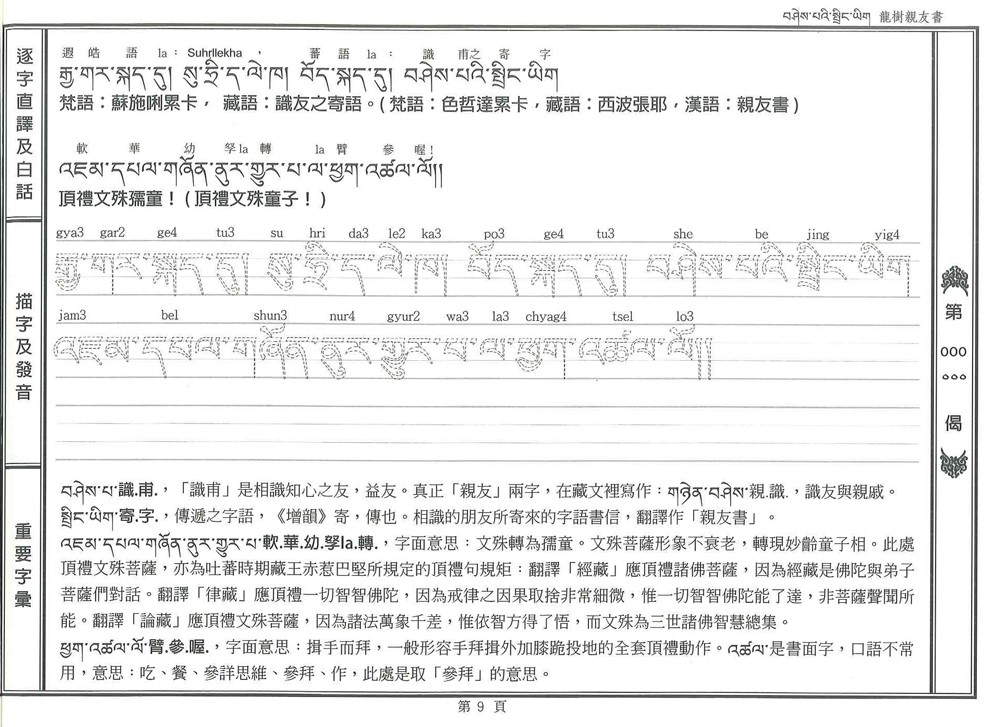 བཤེས་པའི་སྤྲིང་ཡིག 龍樹親友書
逐字直譯及白話
遐 皓 語 la： Suhrllekha ， 蕃 語 la ： 識 甫之 寄 字
རྒྱ་གར་སྐད་དུ། སུ་ཧྲི་ད་ལེ་ཁ། བོད་སྐད་དུ། བཤེས་པའི་སྤྲིང་ཡིག
梵語：蘇施唎累卡， 藏語：識友之寄語。( 梵語：色哲達累卡，藏語：西波張耶，漢語：親友書 )
軟 華 幼 孚la 轉 la 臂 參 喔！
འཇམ་དཔལ་གཞོན་ནུར་གྱུར་པ་ལ་ཕྱག་འཚལ་ལོ།།
頂禮文殊孺童！( 頂禮文殊童子！)
描字及發音
gya3 gar2 ge4 tu3 su hri da3 le2 ka3 po3 ge4 tu3 she be jing yig4
རྒྱ་གར་སྐད་དུ། སུ་ཧྲི་ད་ལེ་ཁ། བོད་སྐད་དུ། བཤེས་པའི་སྤྲིང་ཡིག
jam3 bel shun3 nur4 gyur2 wa3 la3 chyag4 tsel lo3
འཇམ་དཔལ་གཞོན་ནུར་གྱུར་པ་ལ་ཕྱག་འཚལ་ལོ།།
重要字彙
བཤེས་པ་識.甫.，「識甫」是相識知心之友，益友。真正「親友」兩字，在藏文裡寫作：གཉེན་བཤེས་親.識.，識友與親戚。
སྤྲིང་ཡིག་寄.字.，傳遞之字語，《增韻》寄，傳也。相識的朋友所寄來的字語書信，翻譯作「親友書」。
འཇམ་དཔལ་གཞོན་ནུར་གྱུར་པ་軟.華.幼.孚la.轉.，字面意思：文殊轉為孺童。文殊菩薩形象不衰老，轉現妙齡童子相。此處
頂禮文殊菩薩，亦為吐蕃時期藏王赤惹巴堅所規定的頂禮句規矩：翻譯「經藏」應頂禮諸佛菩薩，因為經藏是佛陀與弟子
菩薩們對話。翻譯「律藏」應頂禮一切智智佛陀，因為戒律之因果取捨非常細微，惟一切智智佛陀能了達，非菩薩聲聞所
能。翻譯「論藏」應頂禮文殊菩薩，因為諸法萬象千差，惟依智方得了悟，而文殊為三世諸佛智慧總集。
ཕྱག་འཚལ་ལོ་臂.參.喔.，字面意思：揖手而拜，一般形容手拜揖外加膝跪投地的全套頂禮動作。འཚལ་是書面字，口語不常
用，意思：吃、餐、參詳思維、參拜、作，此處是取「參拜」的意思。
第 000 ०००偈
第 9 頁